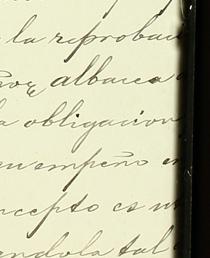 la reprobaci
albacea
a obligacion
empeño e
ncepto es u
endola tal